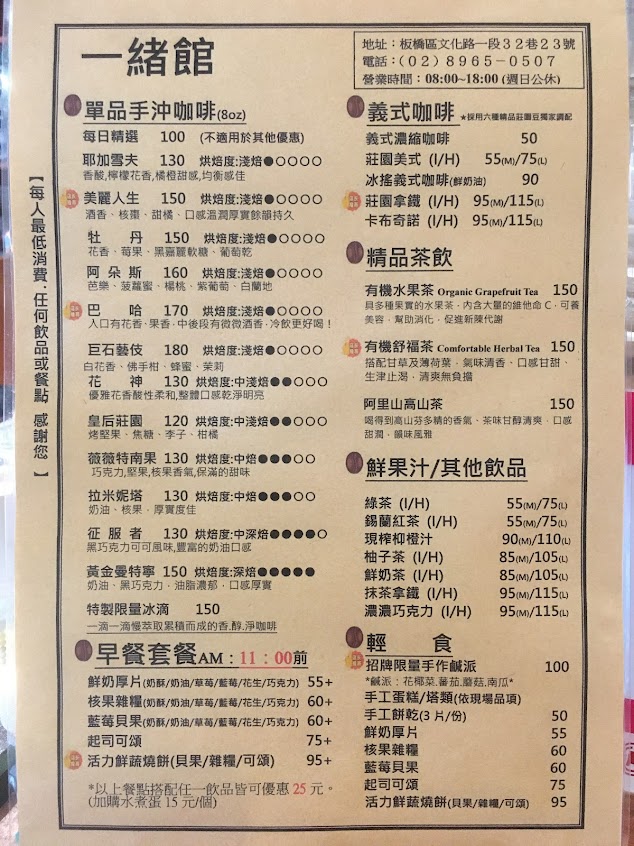 一緒館
地址：板橋區文化路一段32巷23號
電話：(02)8965-0507
營業時間：08:00~18:00 (週日公休)
【每人最低消費：任何飲品或餐點 感謝您 】
單品手沖咖啡(8oz)
每日精選 100 (不適用於其他優惠)
耶加雪夫 130 烘焙度:淺焙●○○○○
香酸,檸檬花香,橘橙甜感,均衡感佳
美麗人生 150 烘焙度:淺焙●○○○○
酒香、核棗、甜橘、口感溫潤厚實餘韻持久
牡丹 150 烘焙度:淺焙●○○○○
花香、莓果、黑嘉麗軟糖、葡萄乾
阿朵斯 160 烘焙度:淺焙●○○○○
芭樂、菠蘿蜜、楊桃、紫葡萄、白蘭地
巴哈 170 烘焙度:淺焙●○○○○
入口有花香·果香·中後段有微微酒香·冷飲更好喝！
巨石藝伎 180 烘焙度:淺焙●○○○○
白花香、佛手柑、蜂蜜、茉莉
花神 130 烘焙度:中淺焙●●○○○
優雅花香酸性柔和,整體口感乾淨明亮
皇后莊園 120 烘焙度:中淺焙●●○○○
烤堅果、焦糖、李子、柑橘
薇薇特南果 130 烘焙度:中焙●●●○○
巧克力,堅果,核果香氣,保滿的甜味
拉米妮塔 130 烘焙度:中焙●●●○○
奶油、核果、厚實度佳
征服者 130 烘焙度:中深焙●●●●○
黑巧克力可可風味,豐富的奶油口感
黃金曼特寧 150 烘焙度:深焙●●●●●
奶油、黑巧克力、油脂濃郁、口感厚實
特製限量冰滴 150
一滴一滴慢萃取累積而成的香.醇.淨咖啡
早餐套餐AM：11：00前
鮮奶厚片(奶酥/奶油/草莓/藍莓/花生/巧克力) 55+
核果雜糧(奶酥/奶油/草莓/藍莓/花生/巧克力) 60+
藍莓貝果(奶酥/奶油/草莓/藍莓/花生/巧克力) 60+
起司可頌 75+
活力鮮蔬燒餅(貝果/雜糧/可頌) 95+
*以上餐點搭配任一飲品皆可優惠 25 元。
(加購水煮蛋 15 元/個)
義式咖啡 ★採用六種精品莊園豆獨家調配
義式濃縮咖啡 50
莊園美式 (I/H) 55(M)/75(L)
冰搖義式咖啡(鮮奶油) 90
莊園拿鐵 (I/H) 95(M)/115(L)
卡布奇諾 (I/H) 95(M)/115(L)
精品茶飲
有機水果茶 Organic Grapefruit Tea 150
具多種果實的水果茶．內含大量的維他命 C．可養
美容．幫助消化．促進新陳代謝
有機舒福茶 Comfortable Herbal Tea 150
搭配甘草及薄荷葉．氣味清香、口感甘甜、
生津止渴，清爽無負擔
阿里山高山茶 150
喝得到高山芬多精的香氣、茶味甘醇清爽、口感
甜潤、韻味風雅
鮮果汁/其他飲品
綠茶 (I/H) 55(M)/75(L)
錫蘭紅茶 (I/H) 55(M)/75(L)
現榨柳橙汁 90(M)/110(L)
柚子茶 (I/H) 85(M)/105(L)
鮮奶茶 (I/H) 85(M)/105(L)
抹茶拿鐵 (I/H) 95(M)/115(L)
濃濃巧克力 (I/H) 95(M)/115(L)
輕食
招牌限量手作鹹派 100
*鹹派：花椰菜.蕃茄.蘑菇.南瓜*
手工蛋糕/塔類(依現場品項)
手工餅乾(3 片/份) 50
鮮奶厚片 55
核果雜糧 60
藍莓貝果 60
起司可頌 75
活力鮮蔬燒餅(貝果/雜糧/可頌) 95